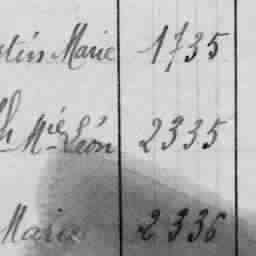 Marie 1735
Mie Léon 2335
Marie 2336